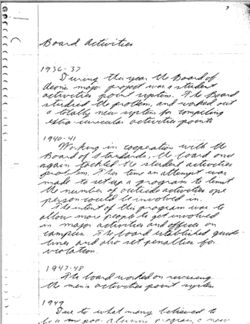 Board Activities
1936-37
During the year the Board of
major project was a student
activities point system. The Board
studied the problem, and worked out
a totally new system for computing
extra-curricular activities points
1940-41
Working in cooperation with the
Board of Standards, the board once
again tackled the student activities
problem. This time an attempt was
made to set up a program to limit
the number of outside activities one
person could be involved in.
The intent of this program was to
allow more people to get involved
in major activities and offices on
campus. The board established guide-
lines and also set penalties for
violation
1947-48
The board worked on revising
the men's activities point system
1949
Due to what many believed to
be a poor program, a new